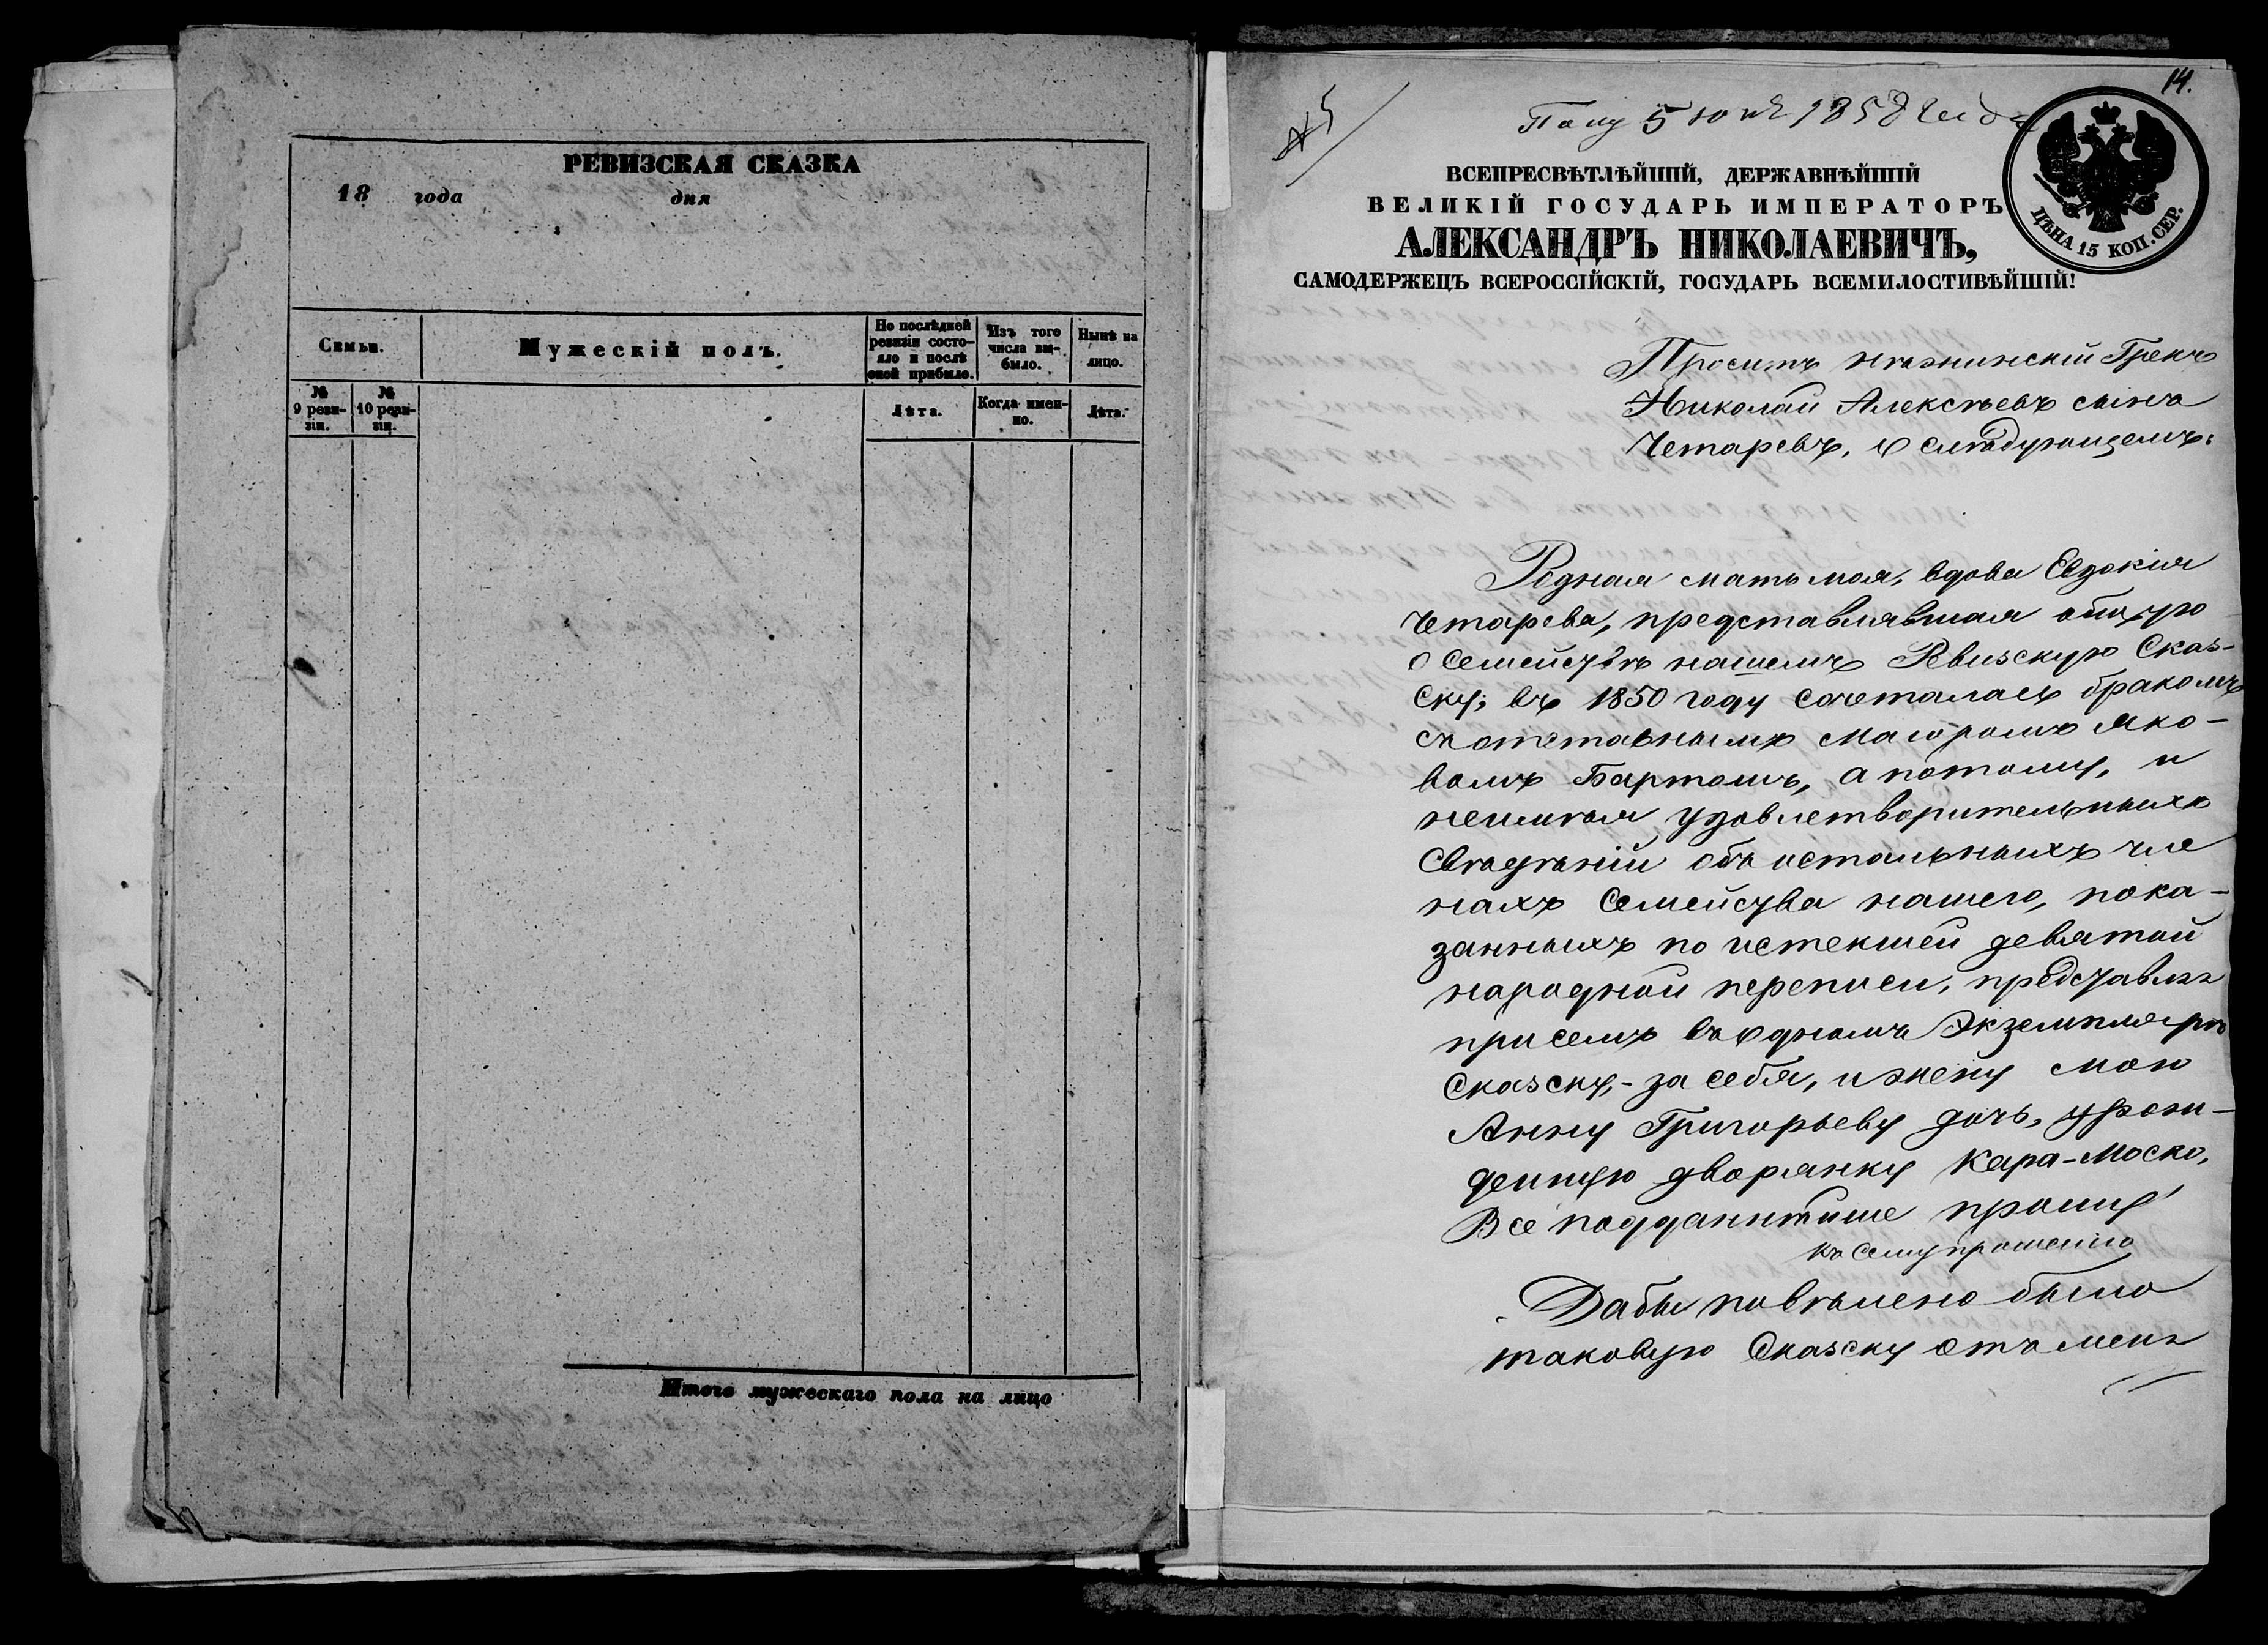 РЕВИЗСКАЯ СКАЗКА
18 года дня
Семьи.
Мужескій полъ.
По послѣдней ревизіи состояло и послѣ оной прибыло.
Изъ того числа выбыло.
Нынѣ на лицо.
№ 9 ревизіи.
№ 10 ревизіи.
Лѣта.
Когда именно.
Лѣта.
Итого мужескаго пола на лицо
14.
№ 5
Полу 5 юня 1858 года
ЦѢНА 15 КОП. СЕР.
ВСЕПРЕСВѢТЛѢЙШІЙ, ДЕРЖАВНѢЙШІЙ
ВЕЛИКІЙ ГОСУДАРЬ ИМПЕРАТОРЪ
АЛЕКСАНДРЪ НИКОЛАЕВИЧЪ,
САМОДЕРЖЕЦЪ ВСЕРОССІЙСКІЙ, ГОСУДАРЬ ВСЕМИЛОСТИВѢЙШІЙ!
Проситъ нѣжинскій Грекъ
Николай Алексѣевъ сынъ
Четаревъ, о слѣдующемъ:
Родная мать моя, вдова Евдокія
Четарева, представлявшая общую
о Семействѣ нашемъ Ревизскую Сказ-
ску; въ 1850 году сочеталась бракомъ
съ отставнымъ маіоромъ Яко-
вомъ Бартошъ, а потому, и
неимѣя удовлетворительныхъ
Свѣдѣній объ остальныхъ чле
нахъ Семейства нашего, пока-
занныхъ по истекшей девятой
народной переписи, представляя
при семъ въ одномъ Экземплярѣ
Сказску, - за себя, и жену мою
Анну Григорьеву дочь, урож-
денную дворянку Кара-Моско,
Всеподданнѣйше прошу
къ Сему прошенію
Дабы повѣлено было
таковую Сказску отъ меня